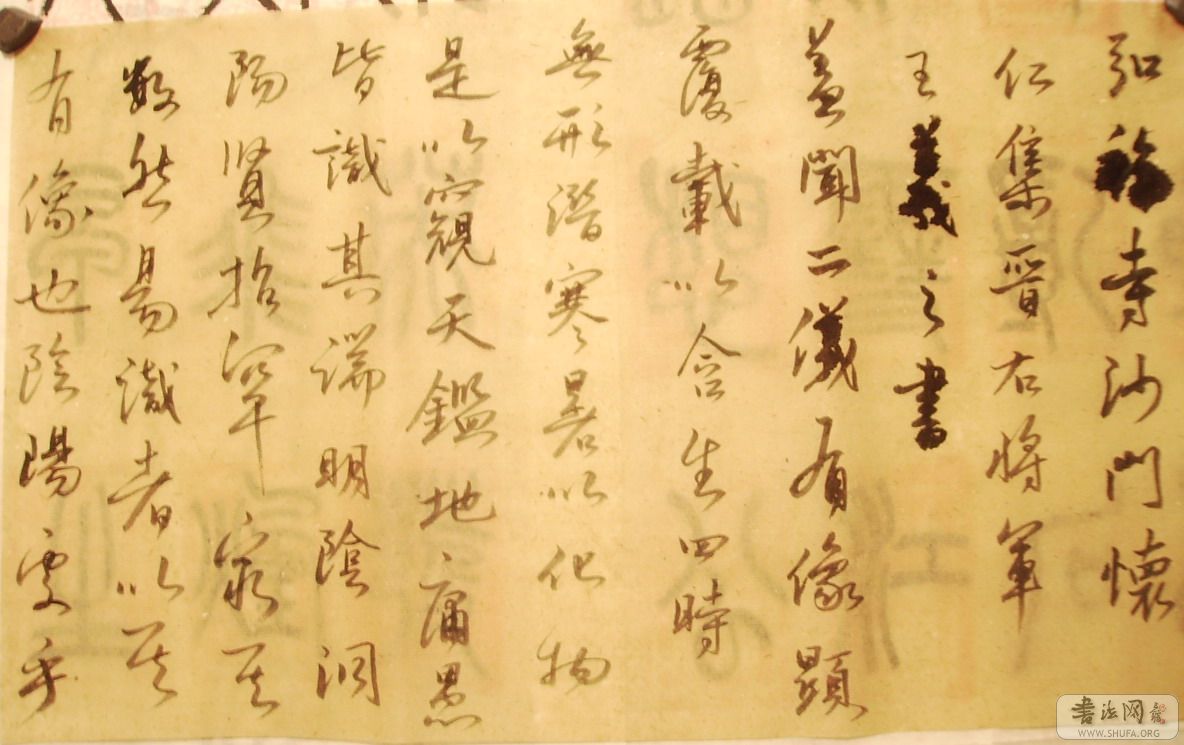 弘福寺沙門懷
仁集晉右將軍
王羲之書
蓋聞二儀有像顯
覆載以含生四時
無形潛寒暑以化物
是以窺天鑑地庸愚
皆識其端明陰洞
陽賢哲罕窮其
數然易識者以其
有像也陰陽處乎
書法网
WWW.SHUFA.ORG